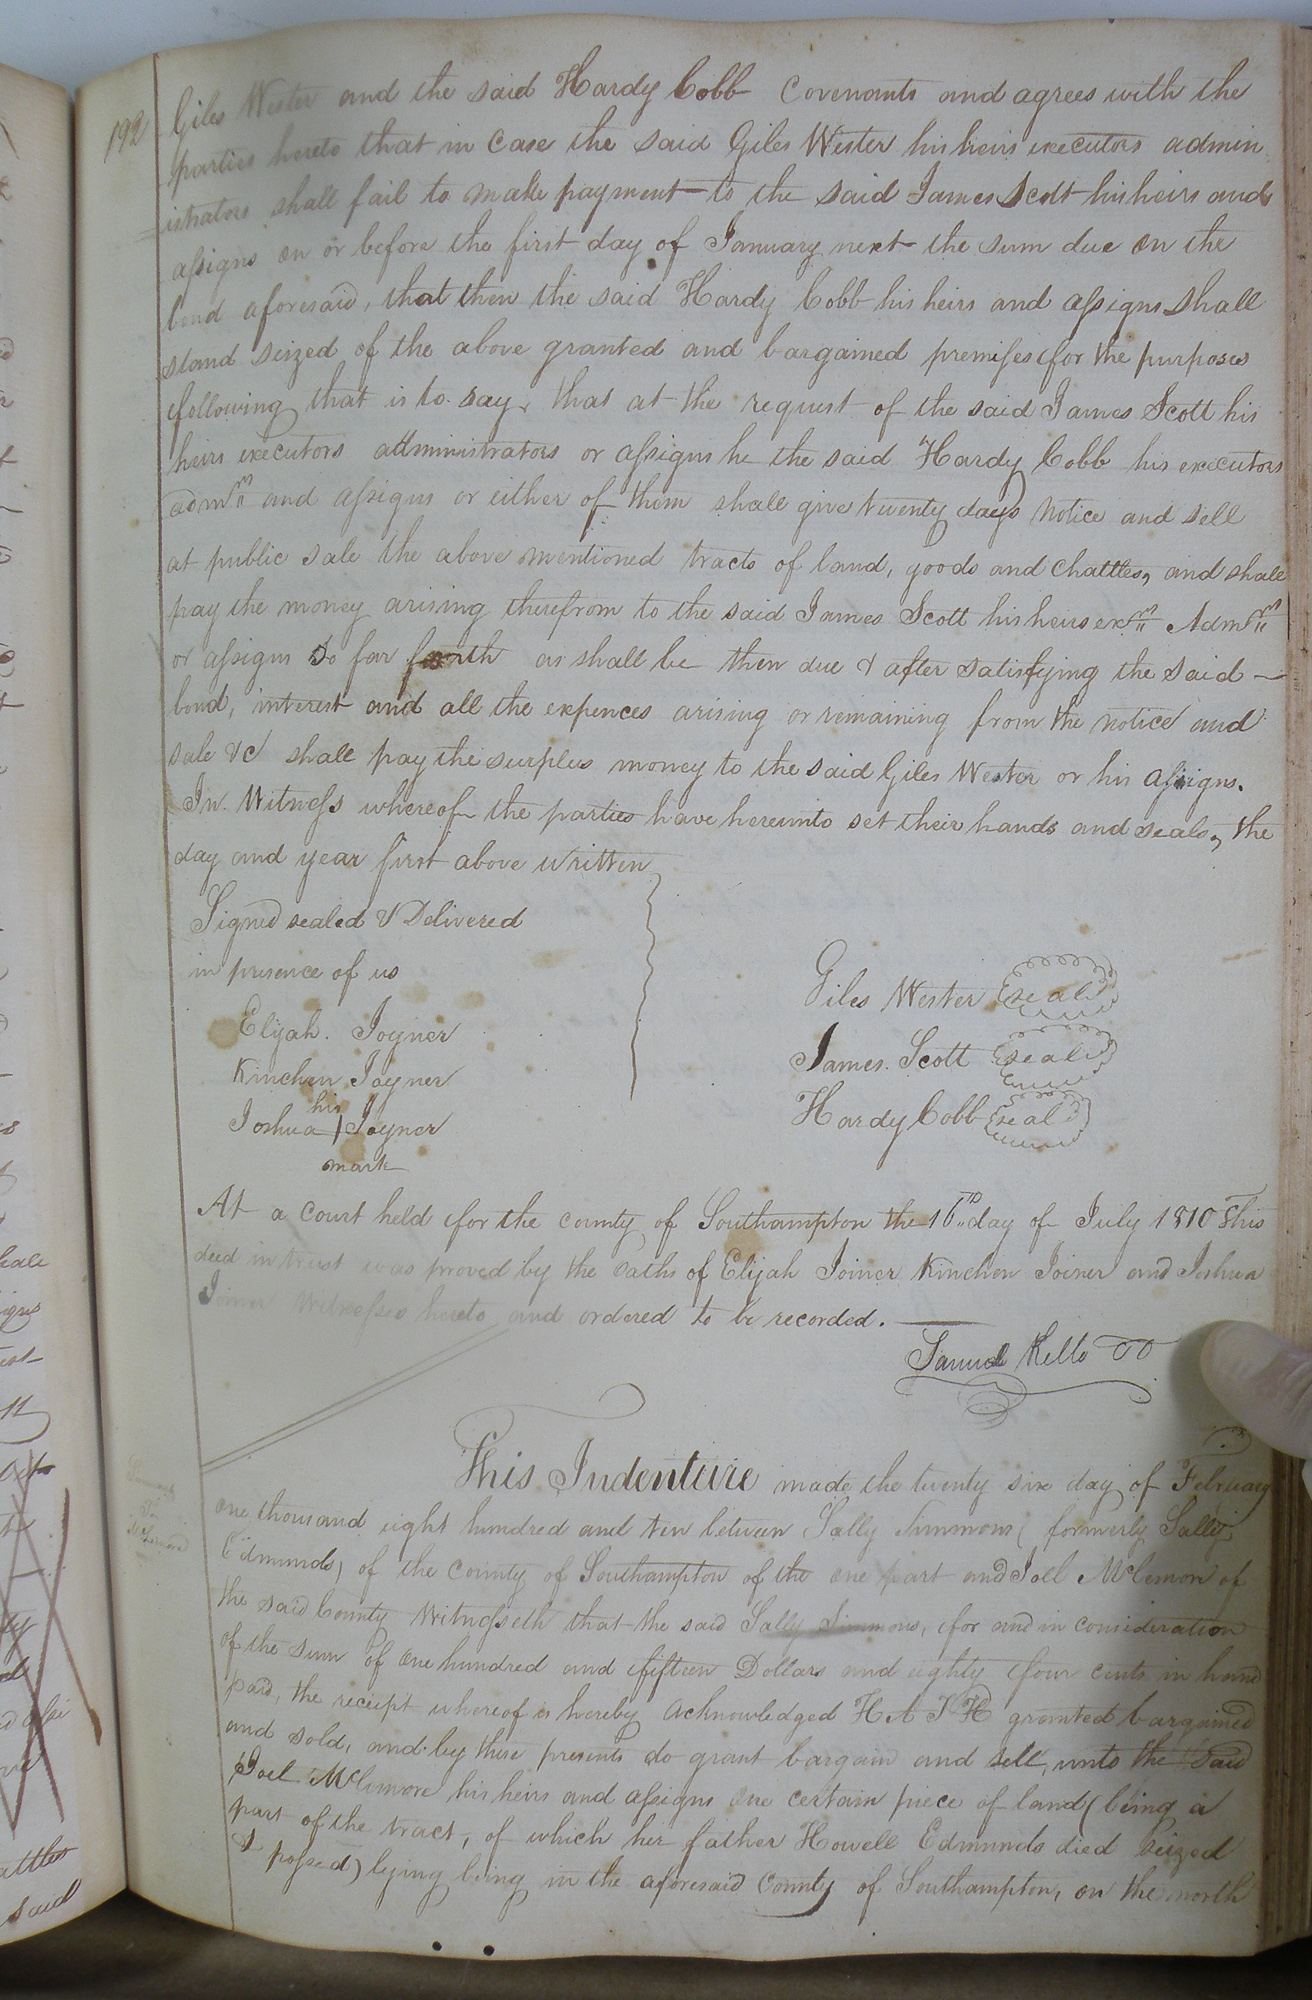 192
Giles Wester and the said Hardy Cobb Covenants and agrees with the
parties hereto that in Case the said Giles Wester his heirs executors admin
istrators shall fail to make payment to the said James Scott his heirs and
assigns on or before the first day of January next the sum due on the
bond aforesaid, that then the said Hardy Cobb his heirs and assigns shall
stand seized of the above granted and bargained premises for the purposes
following that is to say, that at the request of the said James Scott his
heirs executors administrators or assigns he the said Hardy Cobb his executors
admrs and assigns or either of them shall give twenty days notice and sell
at public sale the above mentioned tracts of land, goods and Chattles, and shall
pay the money arising therefrom to the said James Scott his heirs exrs Admrs
or assigns So far forth as shall be then due & after satisfying the said
bond, interest and all the expences arising or remaining from the notice and
sale &c shall pay the surplus money to the said Giles Wester or his assigns.
In Witness whereof the parties have hereunto set their hands and seals, the
day and year first above written
Signed sealed & Delivered
in presence of us
Giles Wester seal
Elijah Joyner
James Scott seal
Kinchen Joyner
Hardy Cobb seal
his
Joshua Joyner
mark
At a Court held for the county of Southampton the 16th day of July 1810 This
deed in trust was proved by the oaths of Elijah Joiner Kinchen Joiner and Joshua
Joiner Witnesses hereto and ordered to be recorded.
Samuel Kello CC
This Indenture made the twenty six day of February
one thousand eight hundred and ten between Sally Simmons (formerly Sally
Edmunds) of the County of Southampton of the one part and Joel McLemore of
the said County Witnesseth that the said Sally Simmons, for and in consideration
of the sum of one hundred and fifteen Dollars and eighty four cents in hand
paid, the receipt whereof is hereby acknowledged HATH granted bargained
and sold, and by these presents do grant bargain and sell unto the said
Joel McLemore his heirs and assigns one certain piece of land (being a
part of the tract, of which her father Howell Edmunds died seized
& possed) lying being in the aforesaid County of Southampton, on the north